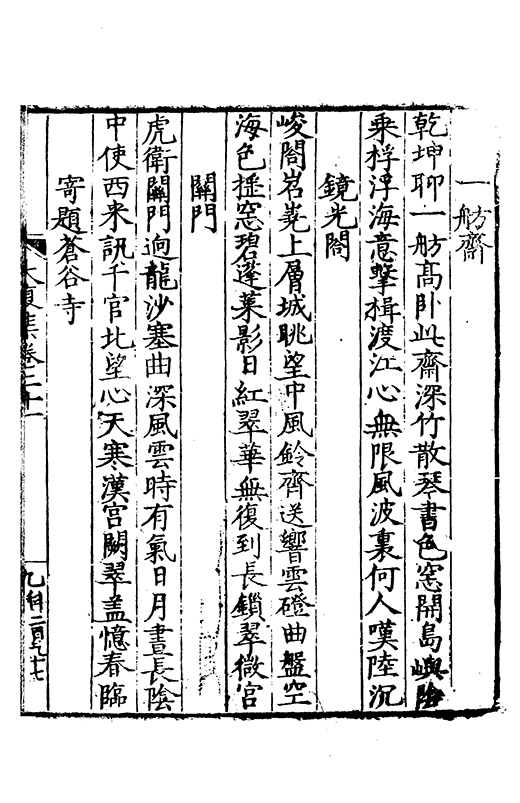 一舫齋
乾坤聊一舫高卧此齋深竹散琴書色窓開島嶼陰
乘桴浮海意擊楫渡江心無限風波裏何人嘆陸沉
鏡光閣
峻閣岩嶤上層城眺望中風鈴齊送響雲磴曲盤空
海色搖窓碧蓬萊影日紅翠華無復到長鎖翠微宮
關門
虎衛關門逈龍沙塞曲深風雲時有氣日月晝長陰
中使西來訊千官北望心天寒漢宮闕翠盖憶春臨
寄題蒼谷寺
集卷二十一